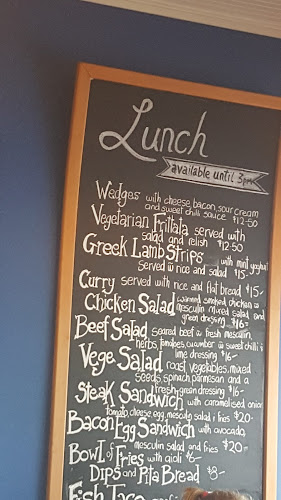 Lunch
available until 3pm
Wedges with cheese, bacon, sour cream
and sweet chilli sauce $12-50
Vegetarian Frittata served with
salad and relish $12-50
Greek Lamb Strips with mint yoghurt
served w rice and salad $15-
Curry served with rice and flat bread $15-
Chicken Salad warmed smoked chicken w
mesculin mixed salad and
green dressing $16-
Beef Salad seared beef w fresh mesculin,
herbs, tomatoes, cucumber w sweet chilli &
lime dressing $16-
Vege Salad roast vegetables, mixed
seeds, spinach, parmesan and a
fresh green dressing $16-
Steak Sandwich with caramelised onion
tomato, cheese, egg, mesculin salad & fries $20-
Bacon & Egg Sandwich with avocado,
mesculin salad and fries $20-
Bowl of Fries with aioli $6-
Dips and Pita Bread $8-
Fish Taco